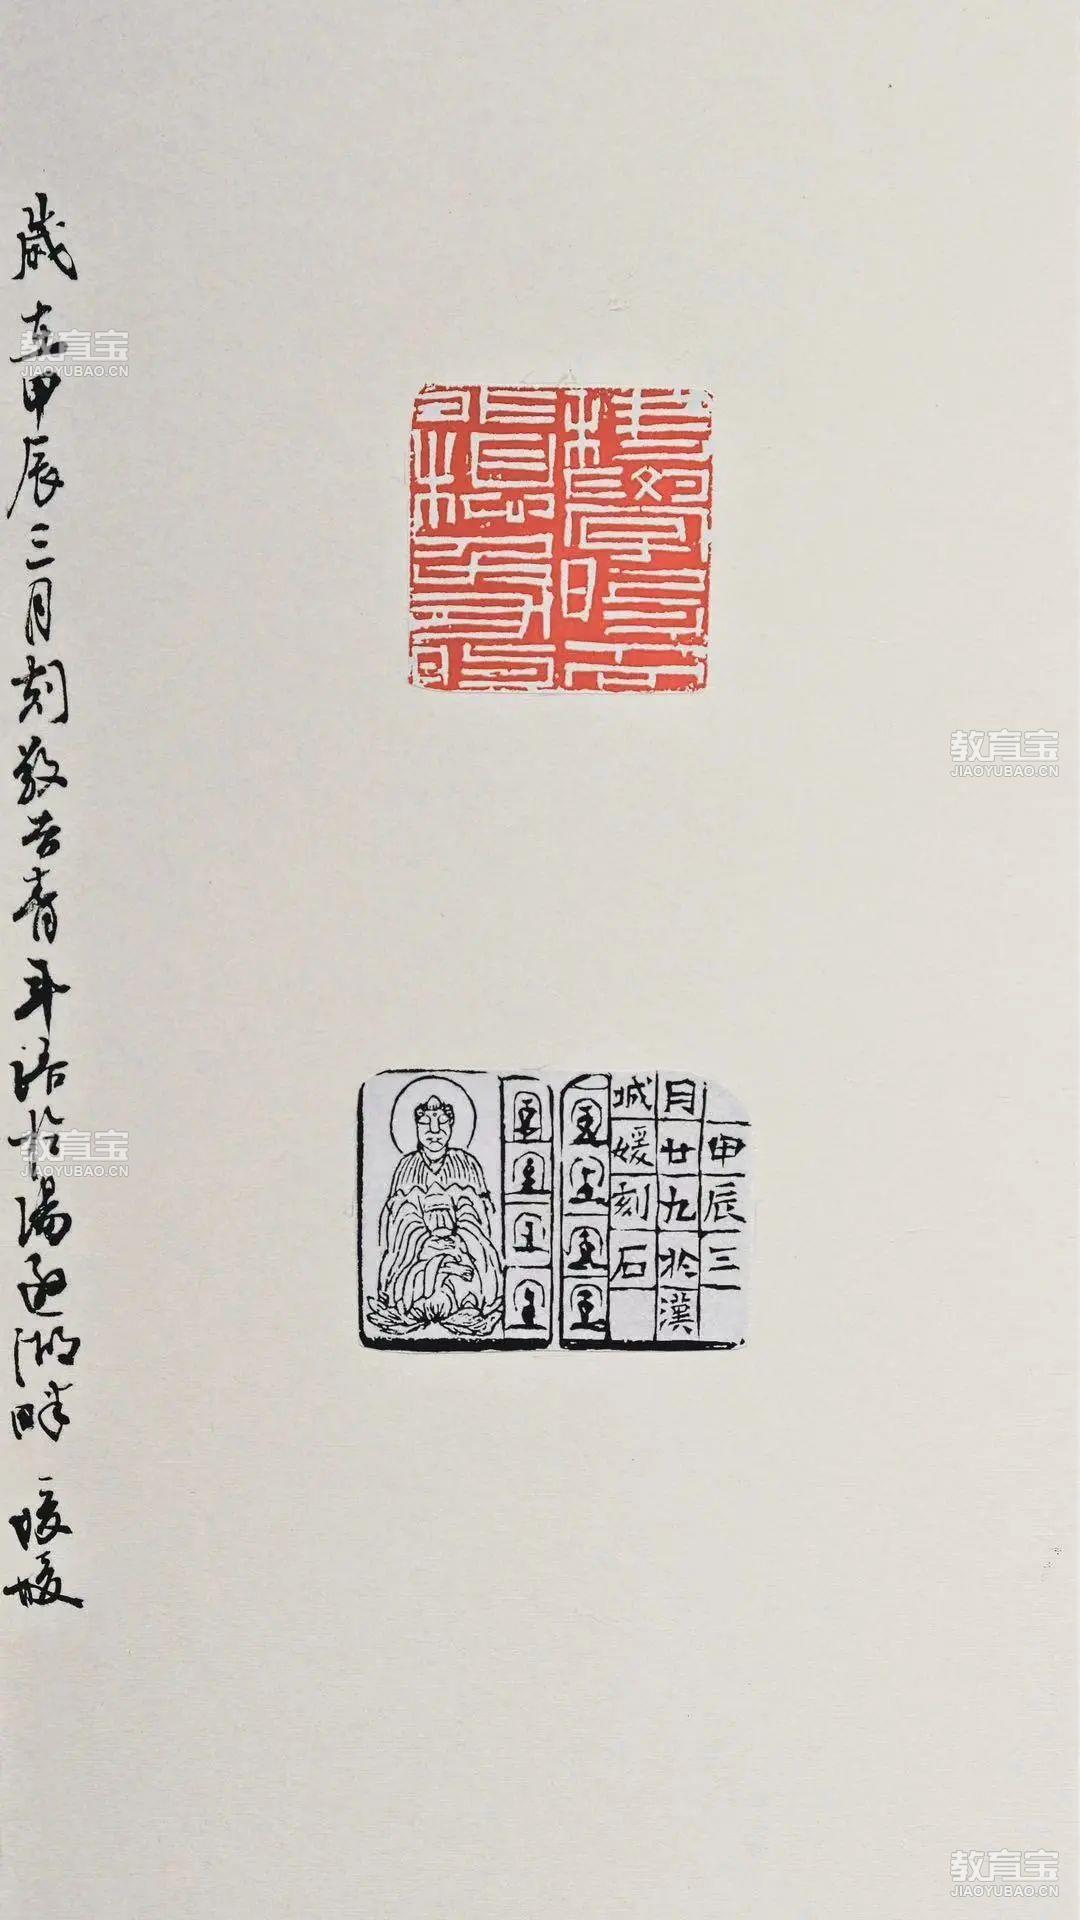 甲辰三
月廿九於漢
城媛刻石
歲在甲辰三月刻敬告青年語於湯遜湖畔 媛媛
教育宝
JIAOYUBAO.CN
教育宝
JIAOYUBAO.CN
教育宝
JIAOYUBAO.CN
教育宝
JIAOYUBAO.CN